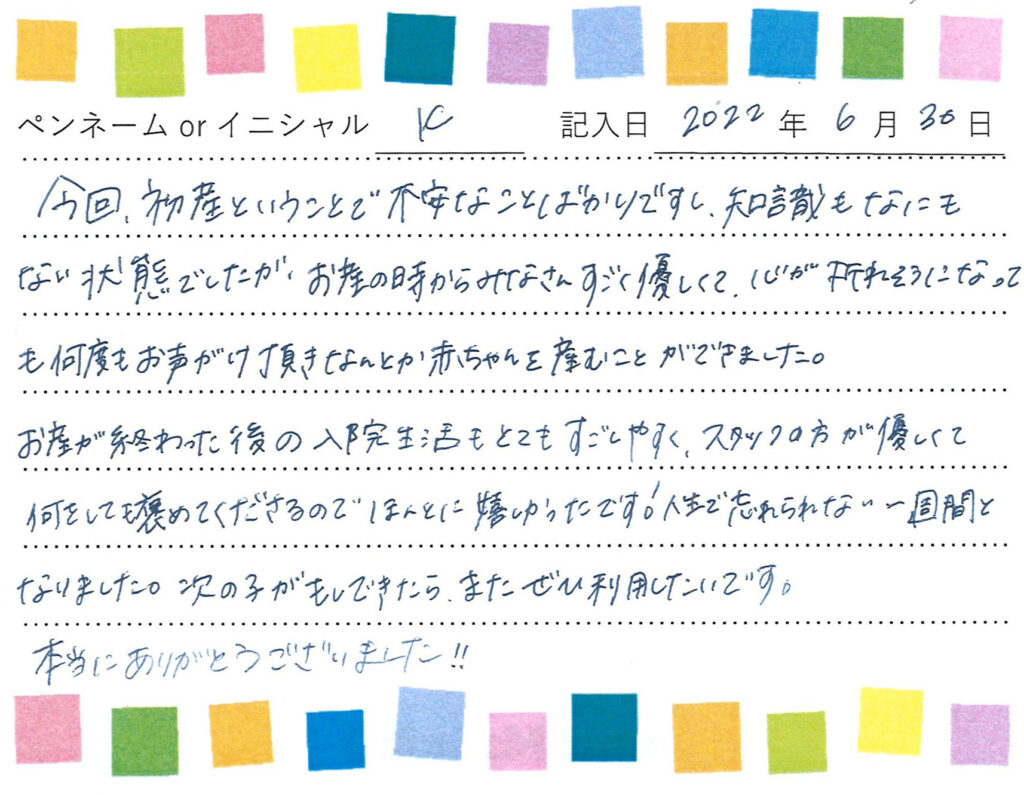 ペンネーム or イニシャル K 記入日 2022 年 6 月 30 日
今回、初産ということで不安なことばかりですし、知識もなにも
ない状態でしたが、お産の時からみなさんすごく優しくて、心が折れそうになって
も何度もお声がけ頂きなんとか赤ちゃんを産むことができました。
お産が終わった後の入院生活もとてもすごしやすく、スタッフの方が優しくて
何をしても褒めてくださるのでほんとに嬉しかったです!人生で忘れられない一週間と
なりました。次の子がもしできたら、またぜひ利用したいです。
本当にありがとうございました!!